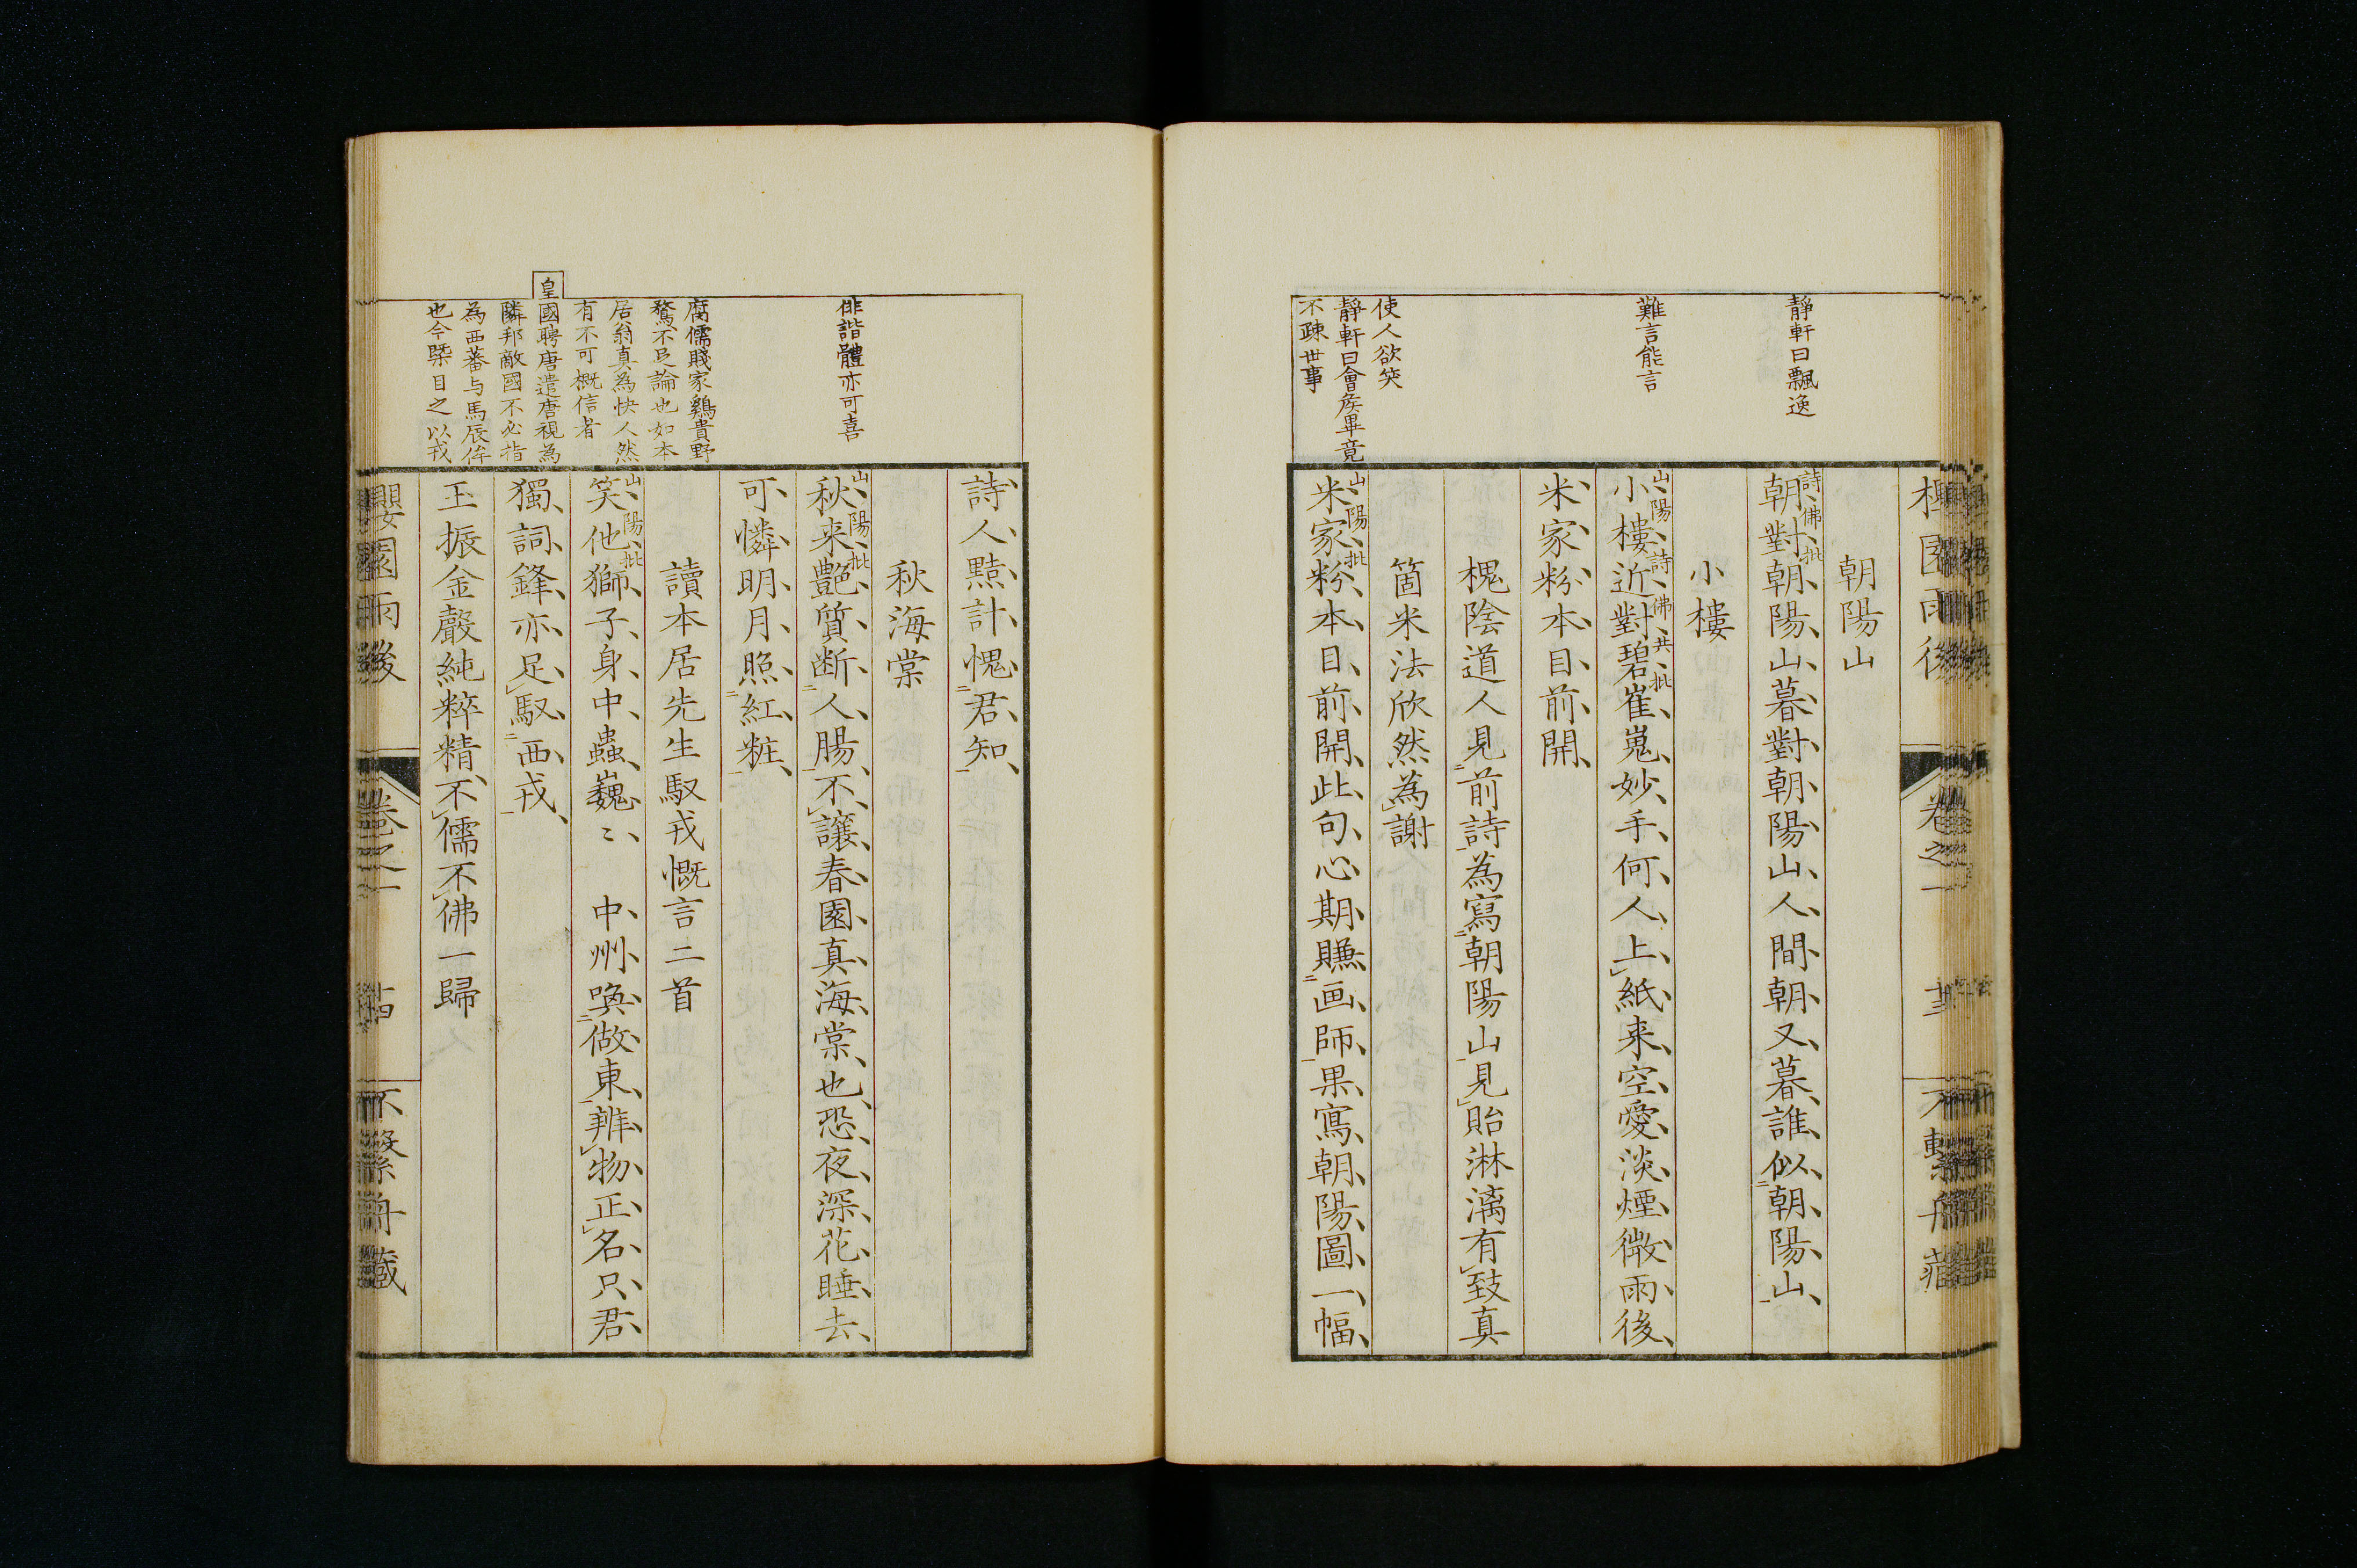 靜軒曰飄逸
難言能言
使人欲笑
靜軒曰會矦畢竟
不疎世事
朝陽山
詩佛批
朝對朝陽山暮對朝陽山人間朝又暮誰似朝陽山
小樓
山陽詩佛共批
小樓近對碧崔嵬妙手何人上紙来空愛淡煙微雨後
米家粉本目前開
槐陰道人見前詩為寫朝陽山見貽淋漓有致真
箇米法欣然為謝
山陽批
米家粉本目前開此句心期賺画師果寫朝陽圖一幅
俳諧體亦可喜
腐儒賤家鷄貴野
鶩不足論也如本
居翁真為快人然
有不可概信者
皇國聘唐遣唐視為
隣邦敵國不必指
為西蕃与馬辰侔
也今槩目之以戎
詩人黠計愧君知
秋海棠
山陽批
秋来艶質断人腸不讓春園真海棠也恐夜深花睡去
可憐明月照紅粧
讀本居先生馭戎慨言二首
山陽批
笑他獅子身中蟲巍〻中州喚做東辨物正名只君
獨詞鋒亦足馭西戎
玉振金聲純粹精不儒不佛一歸
櫻園雨後
卷之一
不繫舟藏